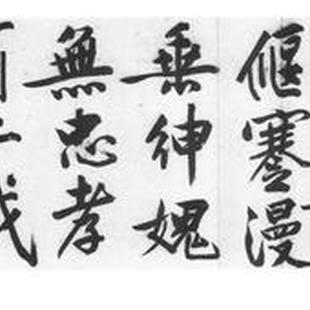 偃蹇漫
垂紳愧
無忠孝